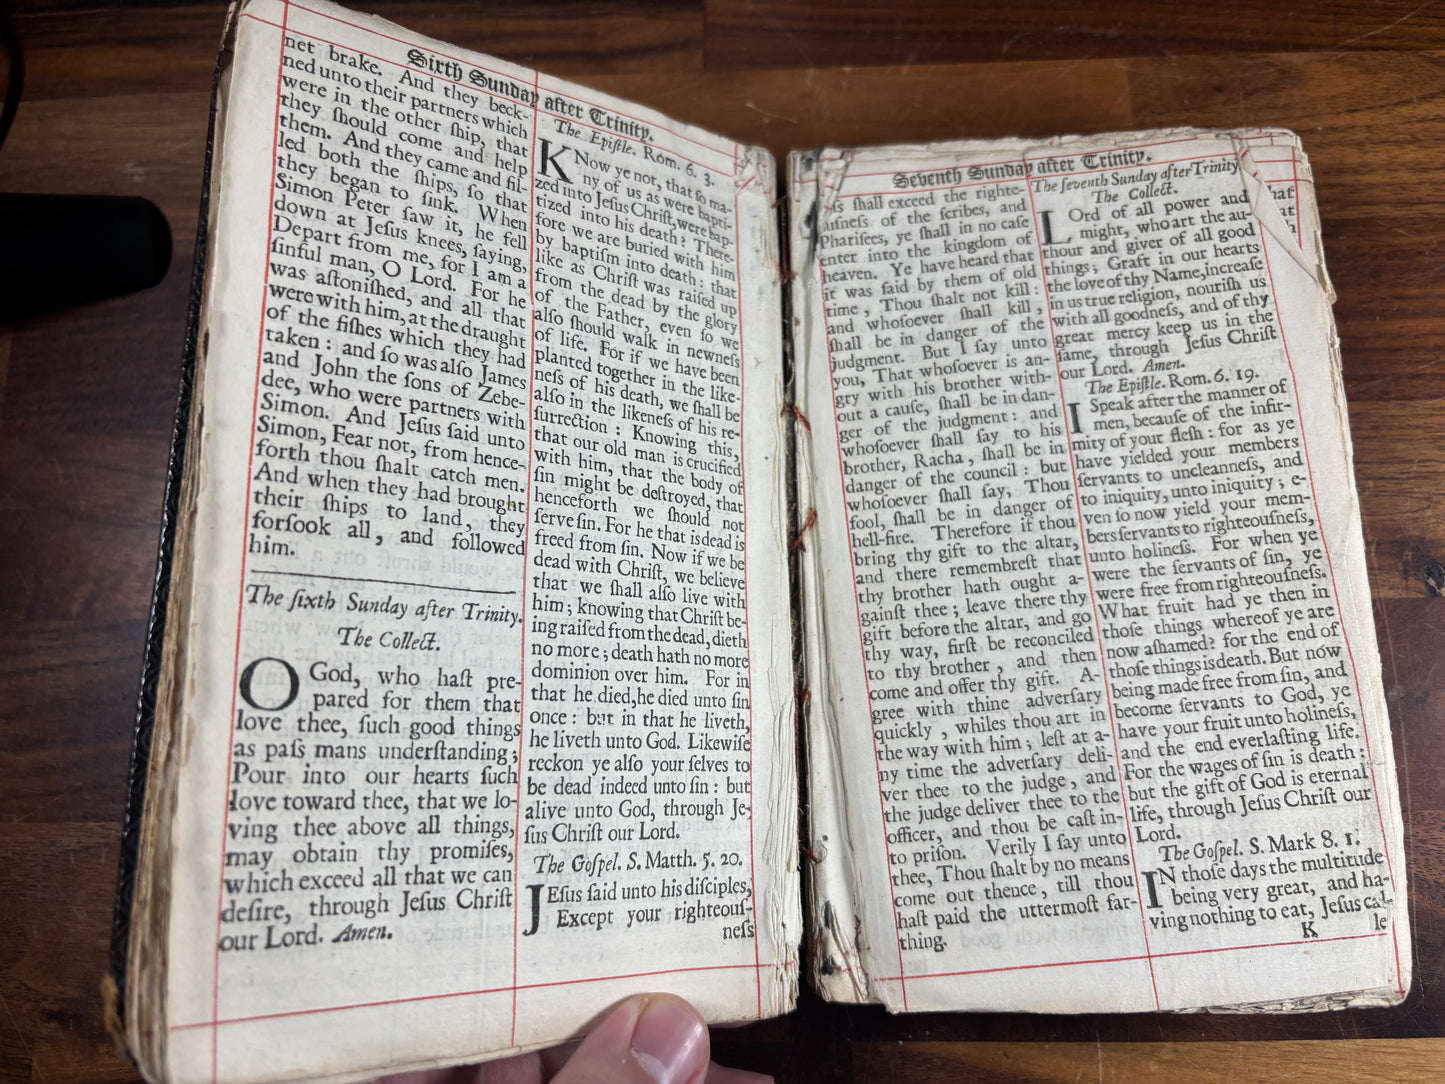 Sixth Sunday after Trinity.
net brake. And they beck-
ned unto their partners which
were in the other ſhip, that
they ſhould come and help
them. And they came and fil-
led both the ſhips, ſo that
they began to ſink. When
Simon Peter ſaw it, he fell
down at Jeſus knees, ſaying,
Depart from me, for I am a
ſinful man, O Lord. For he
was aſtoniſhed, and all that
were with him, at the draught
of the fiſhes which they had
taken: and ſo was alſo James
and John the ſons of Zebe-
dee, who were partners with
Simon. And Jeſus ſaid unto
Simon, Fear not, from hence-
forth thou ſhalt catch men.
And when they had brought
their ſhips to land, they
forſook all, and followed
him.
The ſixth Sunday after Trinity.
The Collect.
O God, who haſt pre-
pared for them that
love thee, ſuch good things
as paſs mans underſtanding;
Pour into our hearts ſuch
love toward thee, that we lo-
ving thee above all things,
may obtain thy promiſes,
which exceed all that we can
deſire, through Jeſus Chriſt
our Lord. Amen.
The Epiſtle. Rom. 6. 3.
KNow ye not, that ſo ma-
ny of us as were bapti-
zed into Jeſus Chriſt, were bap-
tized into his death? There-
fore we are buried with him
by baptiſm into death: that
like as Chriſt was raiſed up
from the dead by the glory
of the Father, even ſo we
alſo ſhould walk in newneſs
of life. For if we have been
planted together in the like-
neſs of his death, we ſhall be
alſo in the likeneſs of his re-
ſurrection: Knowing this,
that our old man is crucified
with him, that the body of
ſin might be deſtroyed, that
henceforth we ſhould not
ſerve ſin. For he that is dead is
freed from ſin. Now if we be
dead with Chriſt, we believe
that we ſhall alſo live with
him; knowing that Chriſt be-
ing raiſed from the dead, dieth
no more; death hath no more
dominion over him. For in
that he died, he died unto ſin
once: but in that he liveth,
he liveth unto God. Likewiſe
reckon ye alſo your ſelves to
be dead indeed unto ſin: but
alive unto God, through Je-
ſus Chriſt our Lord.
The Goſpel. S. Matth. 5. 20.
JEſus ſaid unto his diſciples,
Except your righteouſ-
neſs
Seventh Sunday after Trinity.
ſhall exceed the righte-
ouſneſs of the ſcribes, and
Phariſees, ye ſhall in no caſe
enter into the kingdom of
heaven. Ye have heard that
it was ſaid by them of old
time, Thou ſhalt not kill:
and whoſoever ſhall kill,
ſhall be in danger of the
judgment. But I ſay unto
you, That whoſoever is an-
gry with his brother with-
out a cauſe, ſhall be in dan-
ger of the judgment: and
whoſoever ſhall ſay to his
brother, Racha, ſhall be in
danger of the council: but
whoſoever ſhall ſay, Thou
fool, ſhall be in danger of
hell-fire. Therefore if thou
bring thy gift to the altar,
and there remembreſt that
thy brother hath ought a-
gainſt thee; leave there thy
gift before the altar, and go
thy way, firſt be reconciled
to thy brother, and then
come and offer thy gift. A-
gree with thine adverſary
quickly, whiles thou art in
the way with him; leſt at a-
ny time the adverſary deli-
ver thee to the judge, and
the judge deliver thee to the
officer, and thou be caſt in-
to priſon. Verily I ſay unto
thee, Thou ſhalt by no means
come out thence, till thou
haſt paid the uttermoſt far-
thing.
The ſeventh Sunday after Trinity
The Collect.
LOrd of all power and
might, who art the au-
thour and giver of all good
things; Graft in our hearts
the love of thy Name, increaſe
in us true religion, nouriſh us
with all goodneſs, and of thy
great mercy keep us in the
ſame, through Jeſus Chriſt
our Lord. Amen.
The Epiſtle. Rom. 6. 19.
I Speak after the manner of
men, becauſe of the infir-
mity of your fleſh: for as ye
have yielded your members
ſervants to uncleanneſs, and
to iniquity, unto iniquity; e-
ven ſo now yield your mem-
bers ſervants to righteouſneſs,
unto holineſs. For when ye
were the ſervants of ſin, ye
were free from righteouſneſs.
What fruit had ye then in
thoſe things whereof ye are
now aſhamed? for the end of
thoſe things is death. But now
being made free from ſin, and
become ſervants to God, ye
have your fruit unto holineſs,
and the end everlaſting life.
For the wages of ſin is death:
but the gift of God is eternal
life, through Jeſus Chriſt our
Lord.
The Goſpel. S. Mark 8. 1.
IN thoſe days the multitude
being very great, and ha-
ving nothing to eat, Jeſus cal-
K le